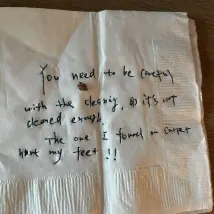 You need to be careful
with the cleaning, as it's not
cleaned enough.
The one I found on carpet
hurt my feet!!